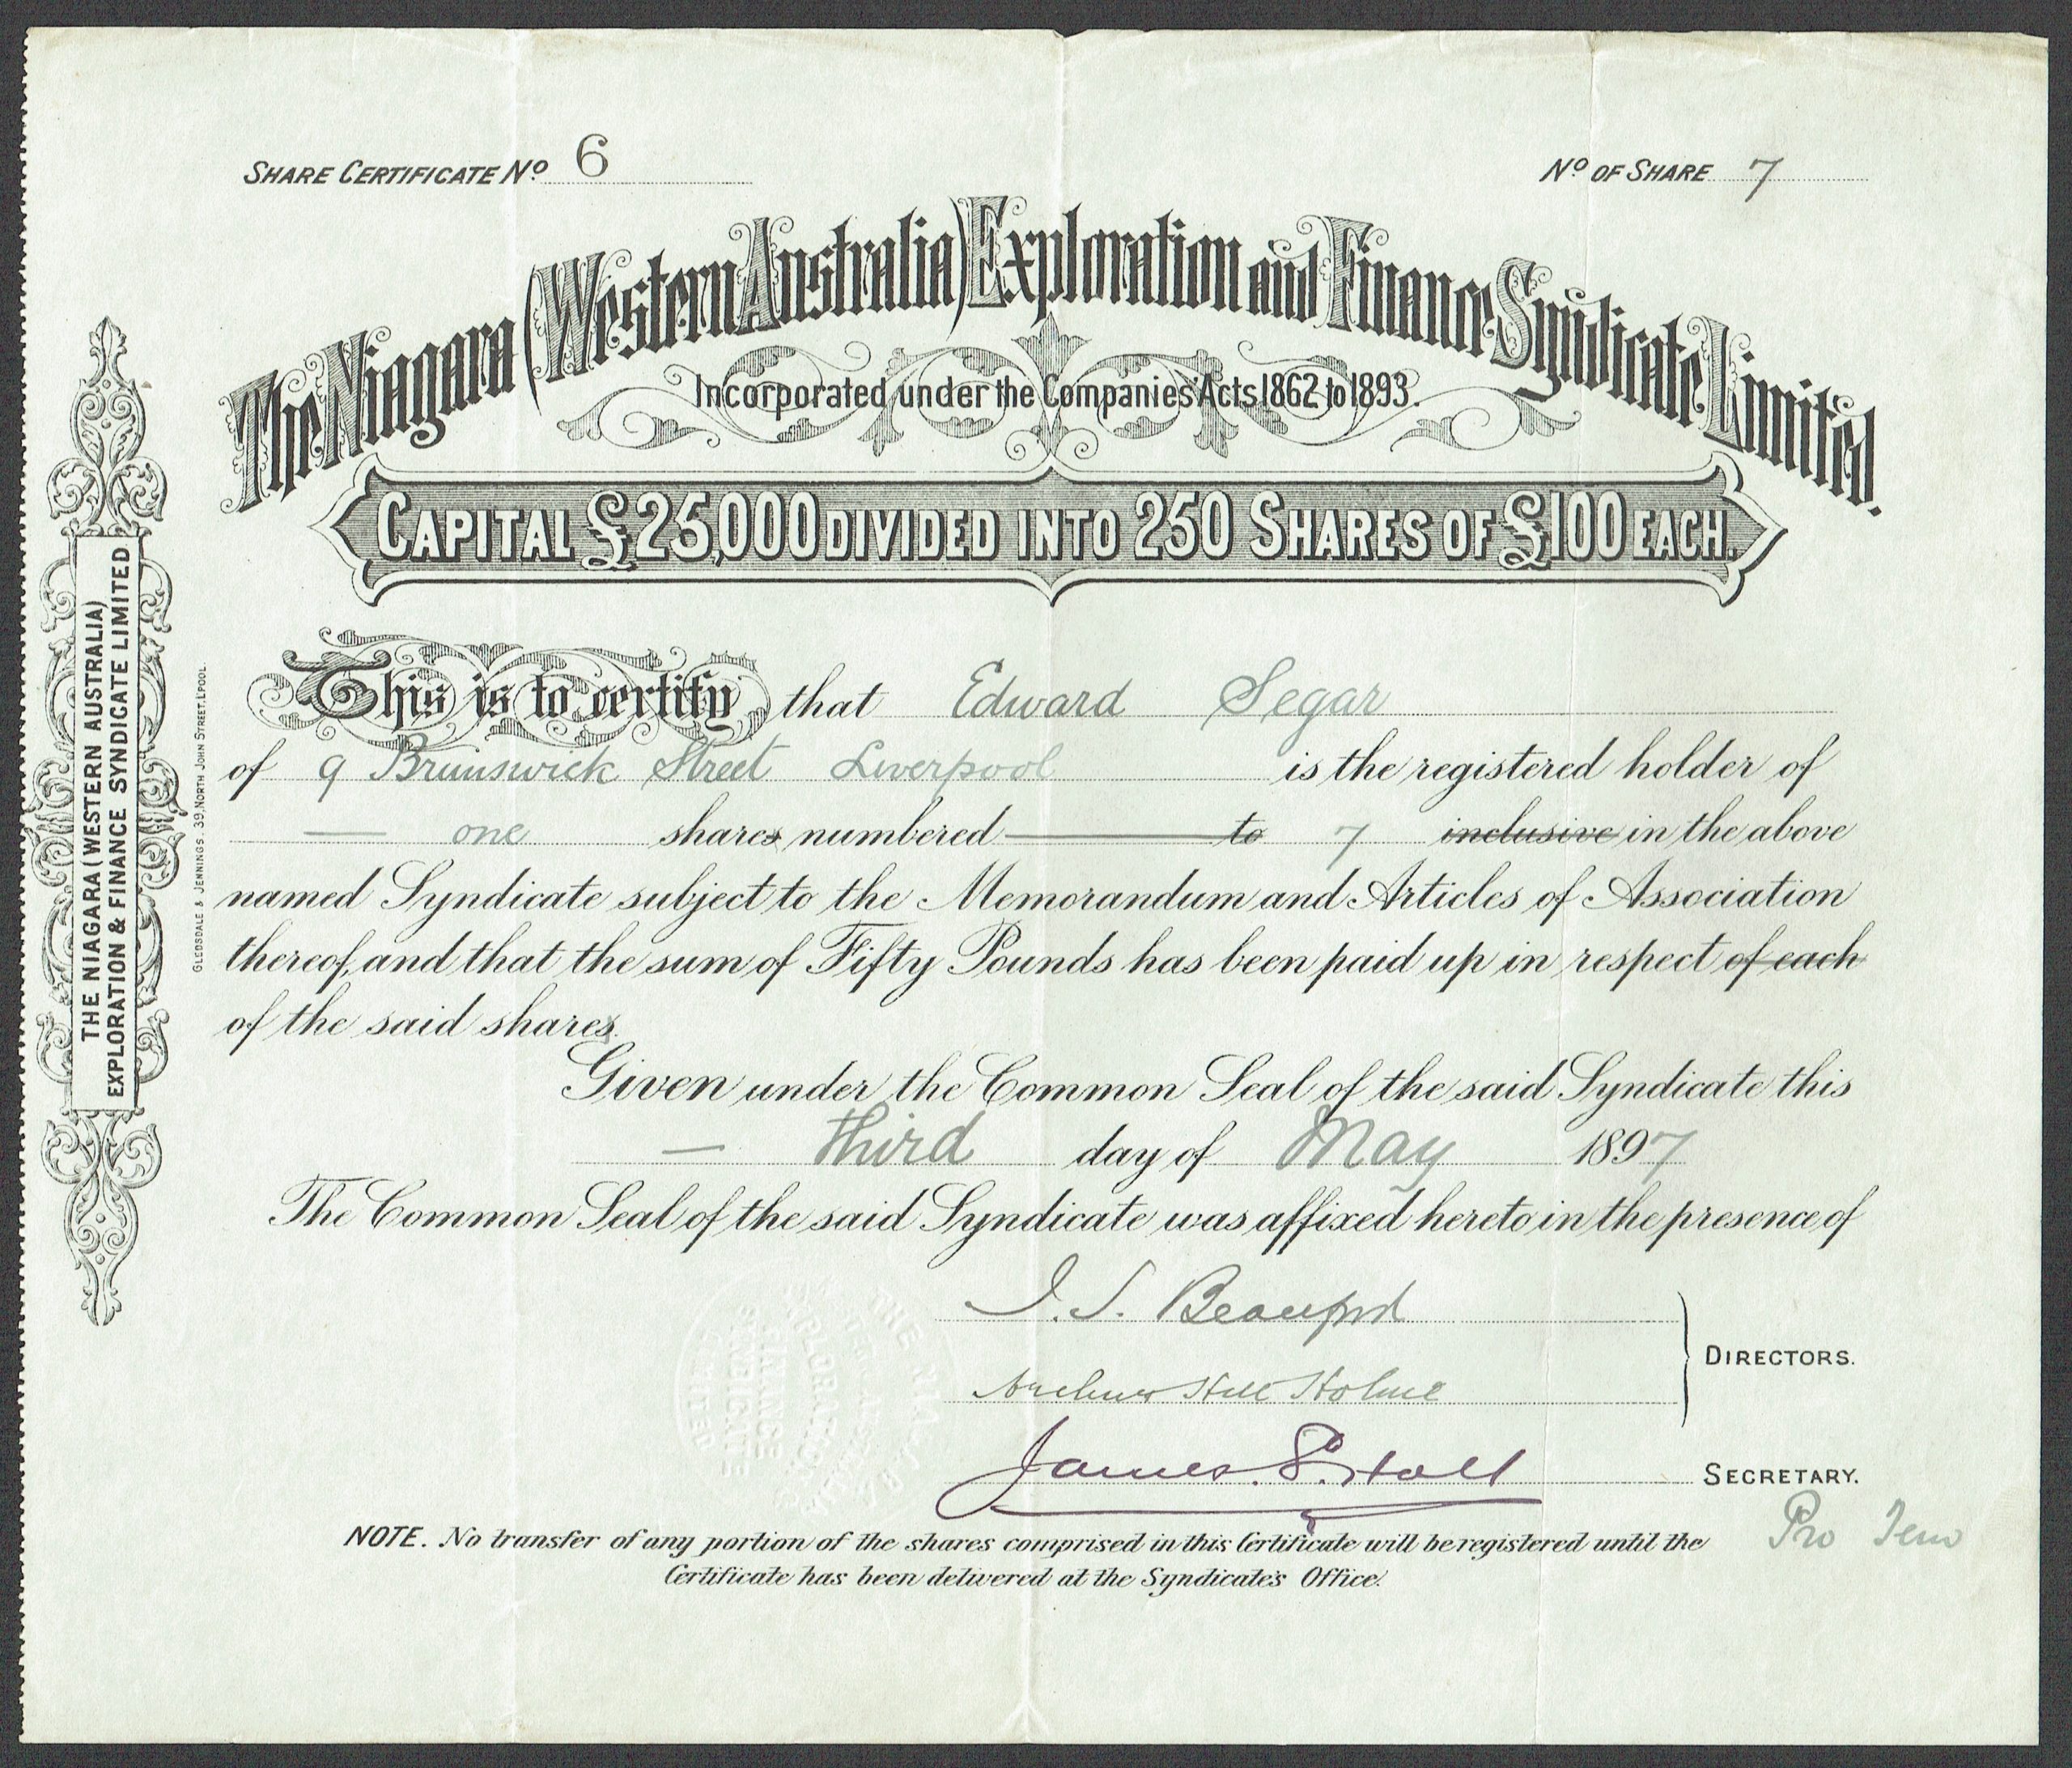 SHARE CERTIFICATE No 6
No OF SHARE 7
The Niagara (Western Australia) Exploration and Finance Syndicate Limited.
Incorporated under the Companies' Acts 1862 to 1893.
CAPITAL £25,000 DIVIDED INTO 250 SHARES OF £100 EACH.
This is to certify that Edward Segar
of 9 Brunswick Street Liverpool is the registered holder of
— one shares numbered to 7 inclusive in the above
named Syndicate subject to the Memorandum and Articles of Association
thereof, and that the sum of Fifty Pounds has been paid up in respect of each
of the said shares.
Given under the Common Seal of the said Syndicate this
— third day of May 1897
The Common Seal of the said Syndicate was affixed hereto in the presence of
J. S. Beauford
Hill Holme
DIRECTORS.
James S. Hall
SECRETARY.
Pro Tem
NOTE. No transfer of any portion of the shares comprised in this Certificate will be registered until the
Certificate has been delivered at the Syndicate's Office.
THE NIAGARA (WESTERN AUSTRALIA)
EXPLORATION & FINANCE SYNDICATE LIMITED
GLEDSDALE & JENNINGS. 39, NORTH JOHN STREET, L'POOL.
FINANCE
SYNDICATE
LIMITED